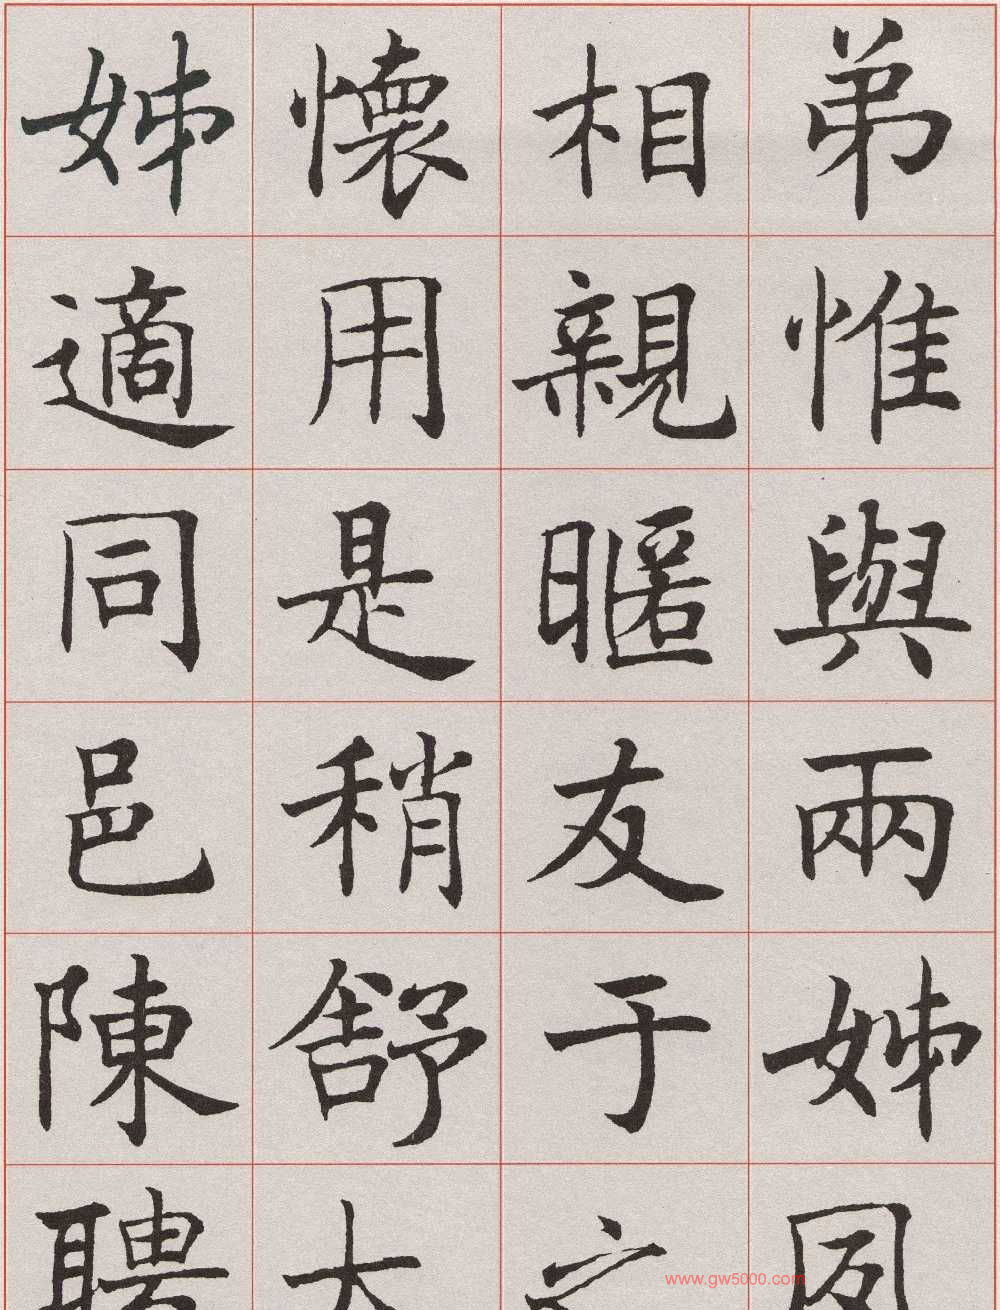 弟惟與兩姊同
相親暱友于之
懷用是稍舒大
姊適同邑陳聘
www.gw5000.com